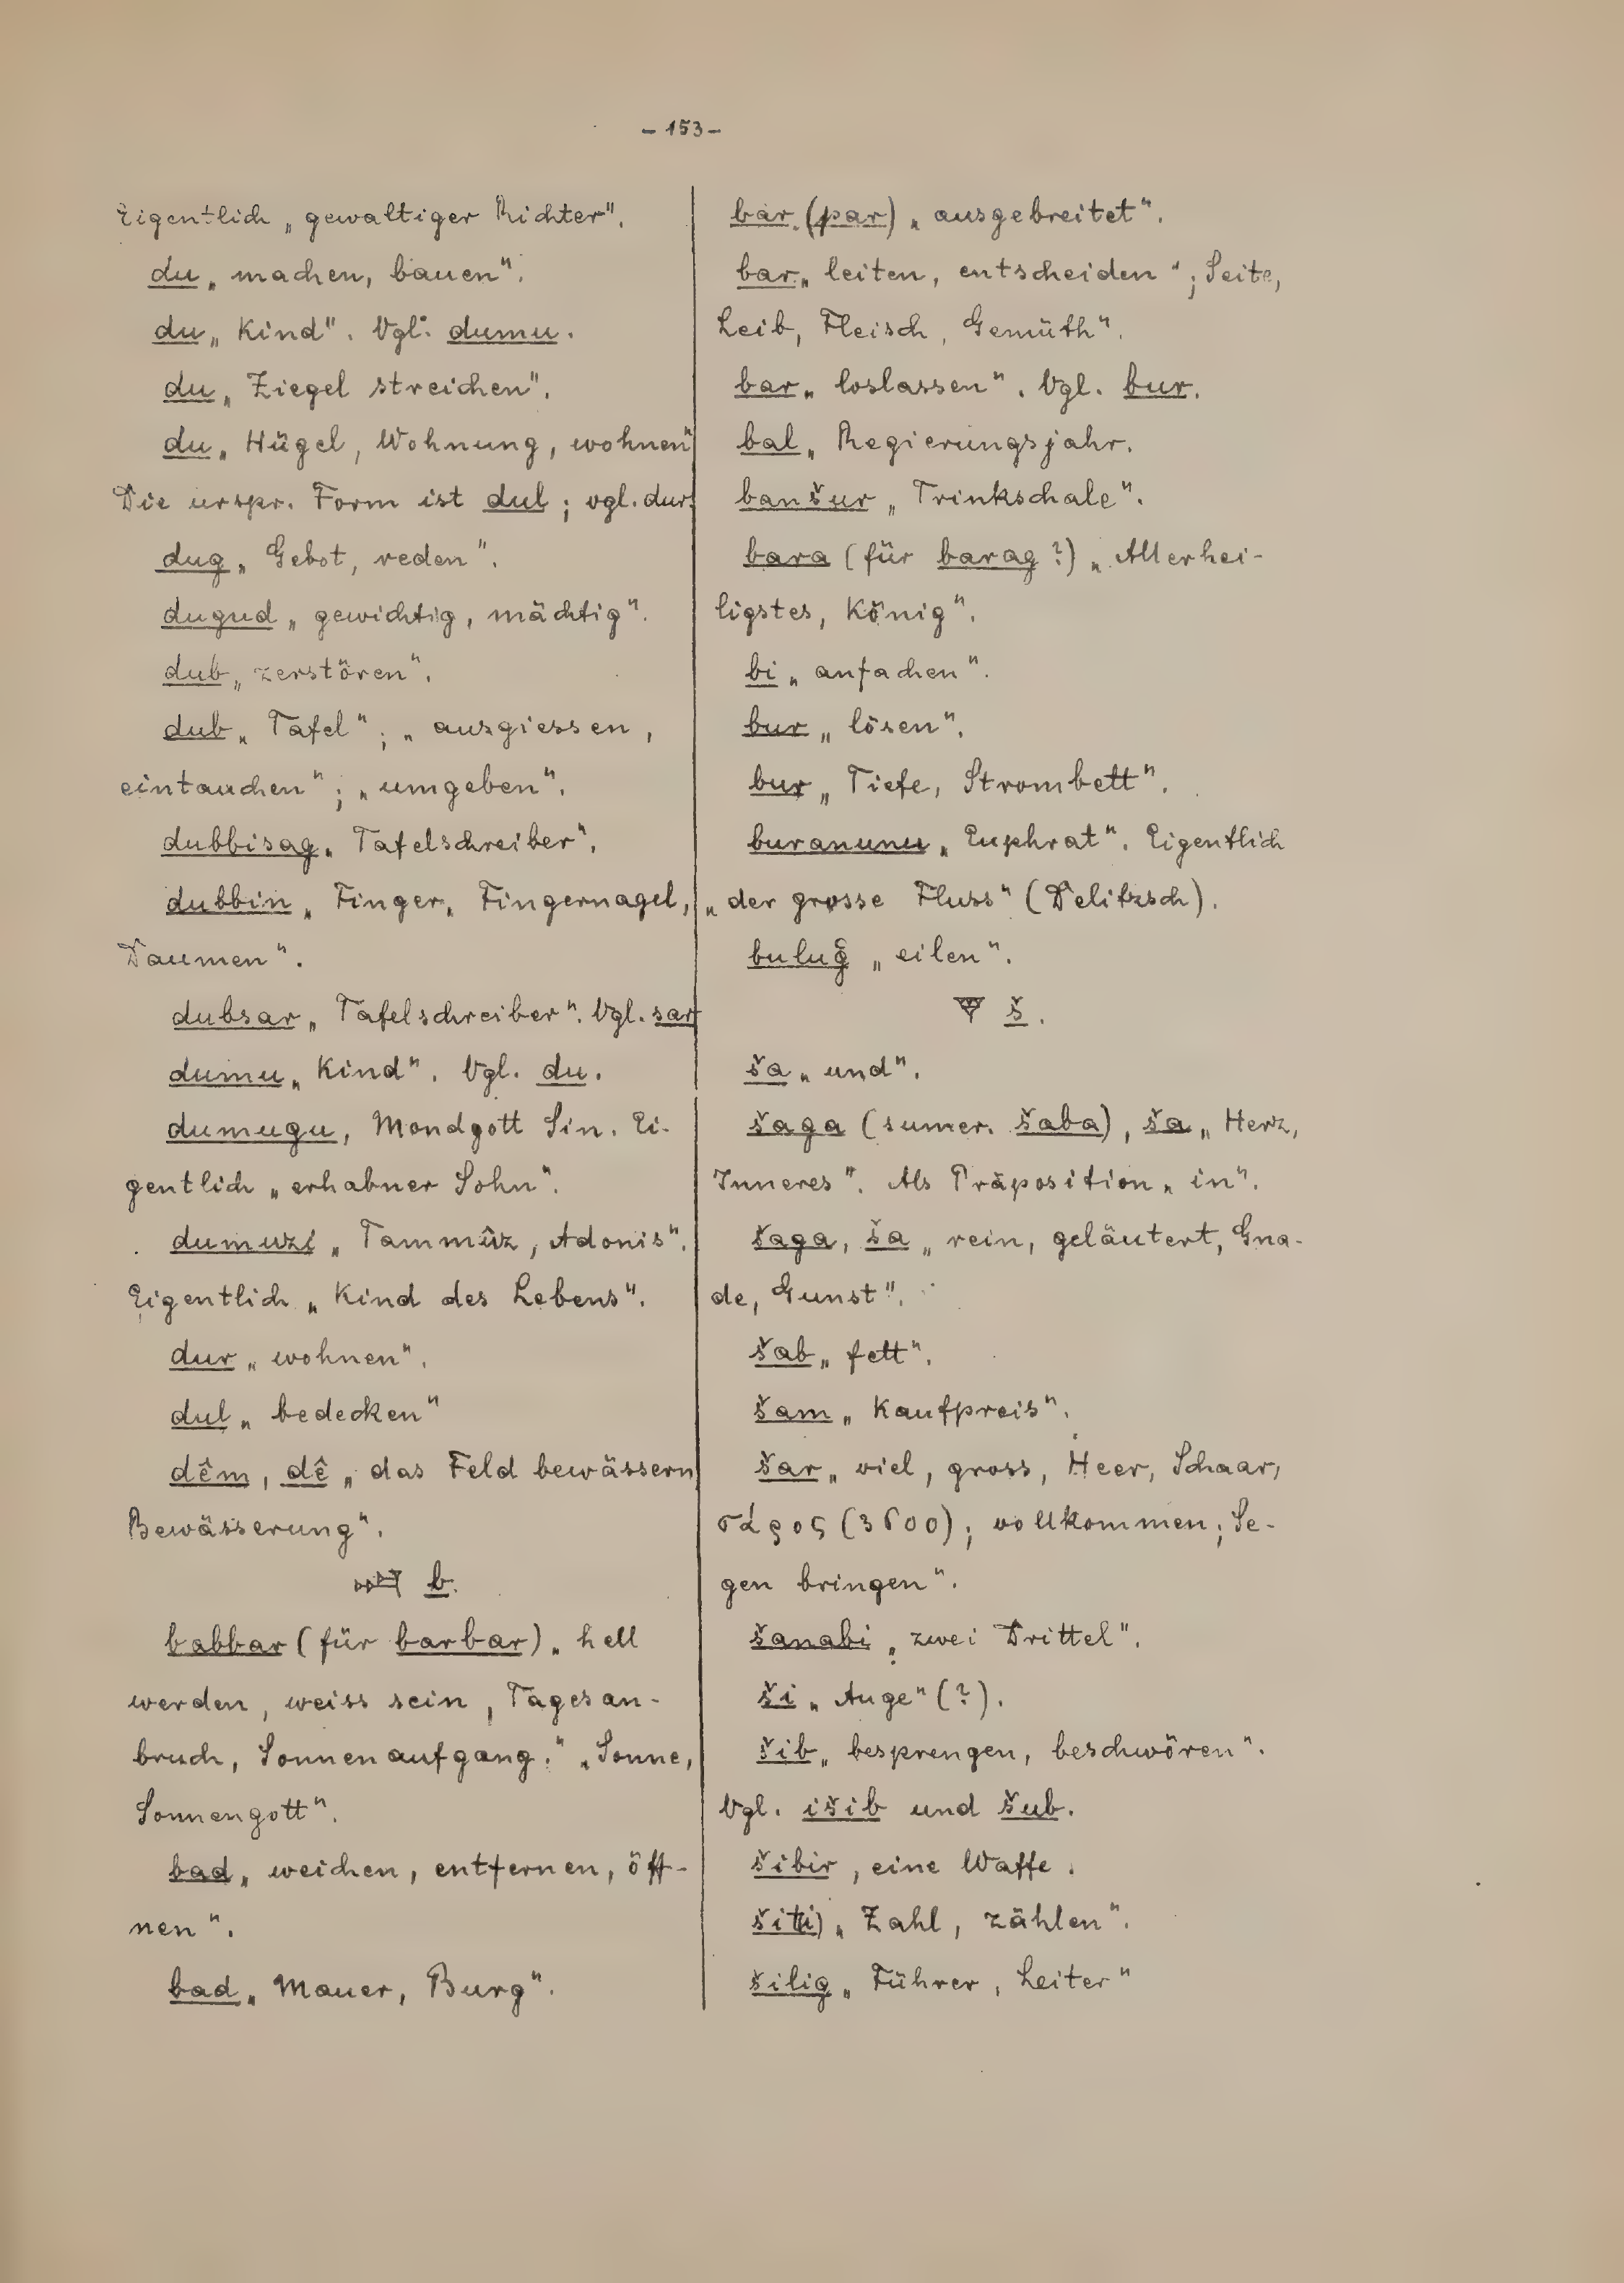 - 153 -
Eigentlich „gewaltiger Richter“.
du „machen, bauen“.
du „Kind“. Vgl. dumu.
du „Ziegel streichen“.
du „Hügel, Wohnung, wohnen“
Die urspr. Form ist dul; vgl. dur.
dug „Gebot, reden“.
dugud „gewichtig, mächtig“.
dub „zerstören“.
dub „Tafel“; „ausgiessen,
eintauchen“; „umgeben“.
dubbisag „Tafelschreiber“.
dubbin „Finger, Fingernagel,
Daumen“.
dubsar „Tafelschreiber“. Vgl. sar
dumu „Kind“. Vgl. du.
dumugu, Mondgott Sin. Ei-
gentlich „erhabner Sohn“.
dumuzi „Tammûz, Adonis“.
Eigentlich „Kind des Lebens“.
dur „wohnen“.
dul „bedecken“
dêm, dê „das Feld bewässern
Bewässerung“.
b.
babbar (für barbar) „hell
werden, weiss sein, Tagesan-
bruch, Sonnenaufgang.“ „Sonne,
Sonnengott“.
bad „weichen, entfernen, öff-
nen“.
bad „Mauer, Burg“.
bar (par) „ausgebreitet“.
bar „leiten, entscheiden“; Seite,
Leib, Fleisch, Gemüth“.
bar „loslassen“. Vgl. bur.
bal „Regierungsjahr.
banšur „Trinkschale“.
bara (für barag?) „Allerhei-
ligstes, König“.
bi „anfachen“.
bur „lösen“.
bur „Tiefe, Strombett“.
buranunu „Euphrat“. Eigentlich
„der grosse Fluss“ (Delitzsch).
buluğ „eilen“.
š.
ša „und“.
šaga (sumer. šaba), ša „Herz,
Inneres“. Als Präposition „in“.
šaga, ša „rein, geläutert, Gna-
de, Gunst“.
šab „fett“.
šam „Kaufpreis“.
šar „viel, gross, Heer, Schaar,
σάρος (3600); vollkommen; Se-
gen bringen“.
šanabi „zwei Drittel“.
ši „Auge“ (?).
šib „besprengen, beschwören“.
Vgl. išib und šub.
šibir, eine Waffe.
šit(i) „Zahl, zählen“.
šilig „Führer, Leiter“